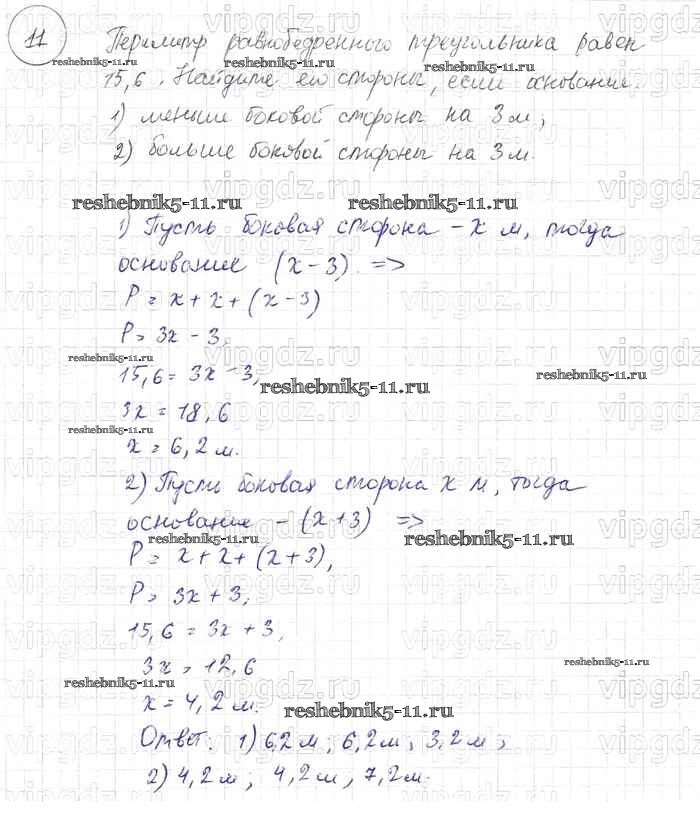 11 Периметр равнобедренного треугольника равен
15,6. Найдите его стороны, если основание.
1) меньше боковой стороны на 3 м;
2) больше боковой стороны на 3 м.
1) Пусть боковая сторона – x м, тогда
основание (x – 3). =>
P = x + x + (x – 3)
P = 3x – 3,
15,6 = 3x – 3,
3x = 18,6
x = 6,2 м.
2) Пусть боковая сторона x м, тогда
основание – (x + 3) =>
P = x + x + (x + 3),
P = 3x + 3,
15,6 = 3x + 3,
3x = 12,6
x = 4,2 м.
Ответ: 1) 6,2 м; 6,2 м; 3,2 м;
2) 4,2 м; 4,2 м; 7,2 м.
reshebnik5-11.ru
vipgdz.ru